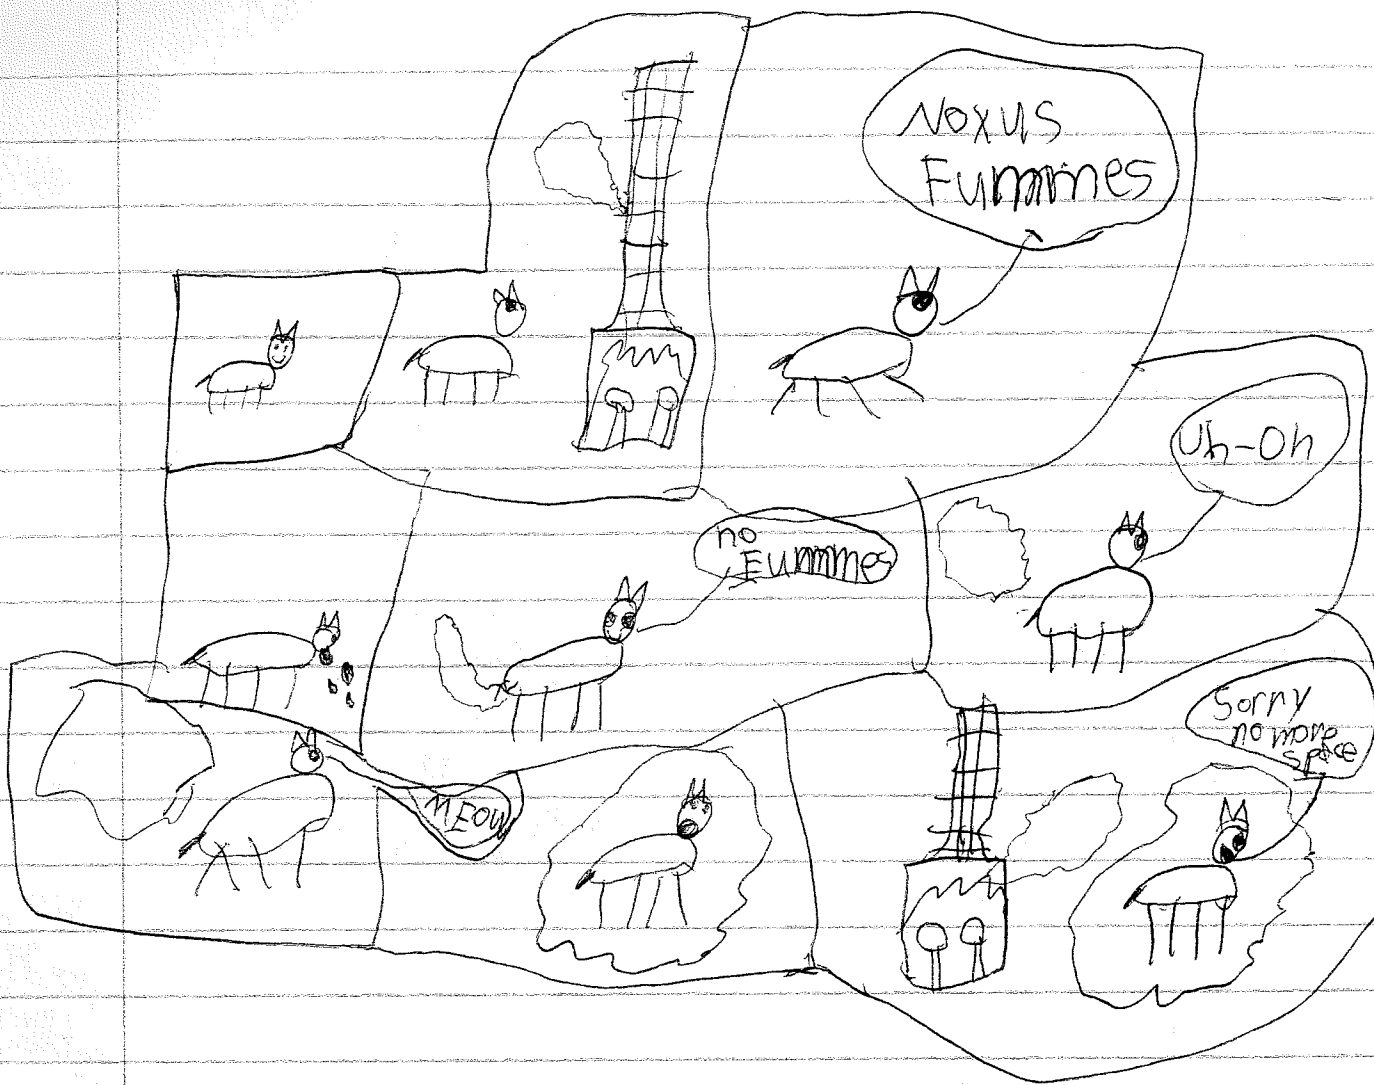 Noxus
Fummmes
Uh-Oh
no
Fummmes
MEOW
Sorry
no more
space